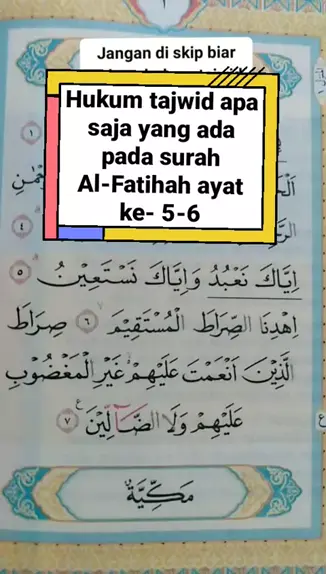 Jangan di skip biar
Hukum tajwid apa
saja yang ada
pada surah
Al-Fatihah ayat
ke- 5-6
اِيَّاكَ نَعْبُدُ وَاِيَّاكَ نَسْتَعِيْنُ ۝٥
اِهْدِنَا الصِّرَاطَ الْمُسْتَقِيْمَ ۝٦ صِرَاطَ
الَّذِيْنَ اَنْعَمْتَ عَلَيْهِمْ غَيْرِ الْمَغْضُوْبِ
عَلَيْهِمْ وَلَا الضَّآلِّيْنَ ۝٧
مَكِّيَّةٌ